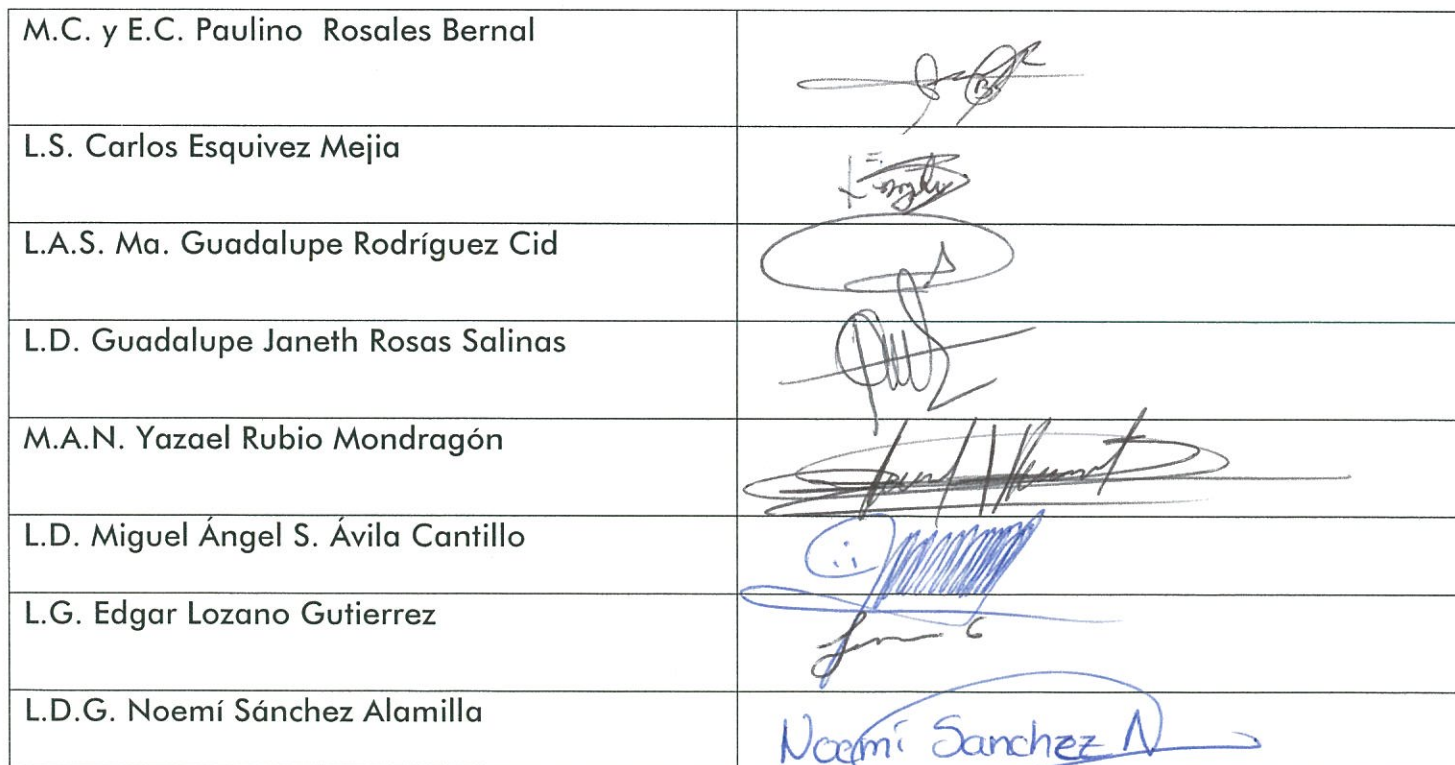 M.C. y E.C. Paulino Rosales Bernal
L.S. Carlos Esquivez Mejia
L.A.S. Ma. Guadalupe Rodríguez Cid
L.D. Guadalupe Janeth Rosas Salinas
M.A.N. Yazael Rubio Mondragón
L.D. Miguel Ángel S. Ávila Cantillo
L.G. Edgar Lozano Gutierrez
L.D.G. Noemí Sánchez Alamilla
Noemí Sanchez A